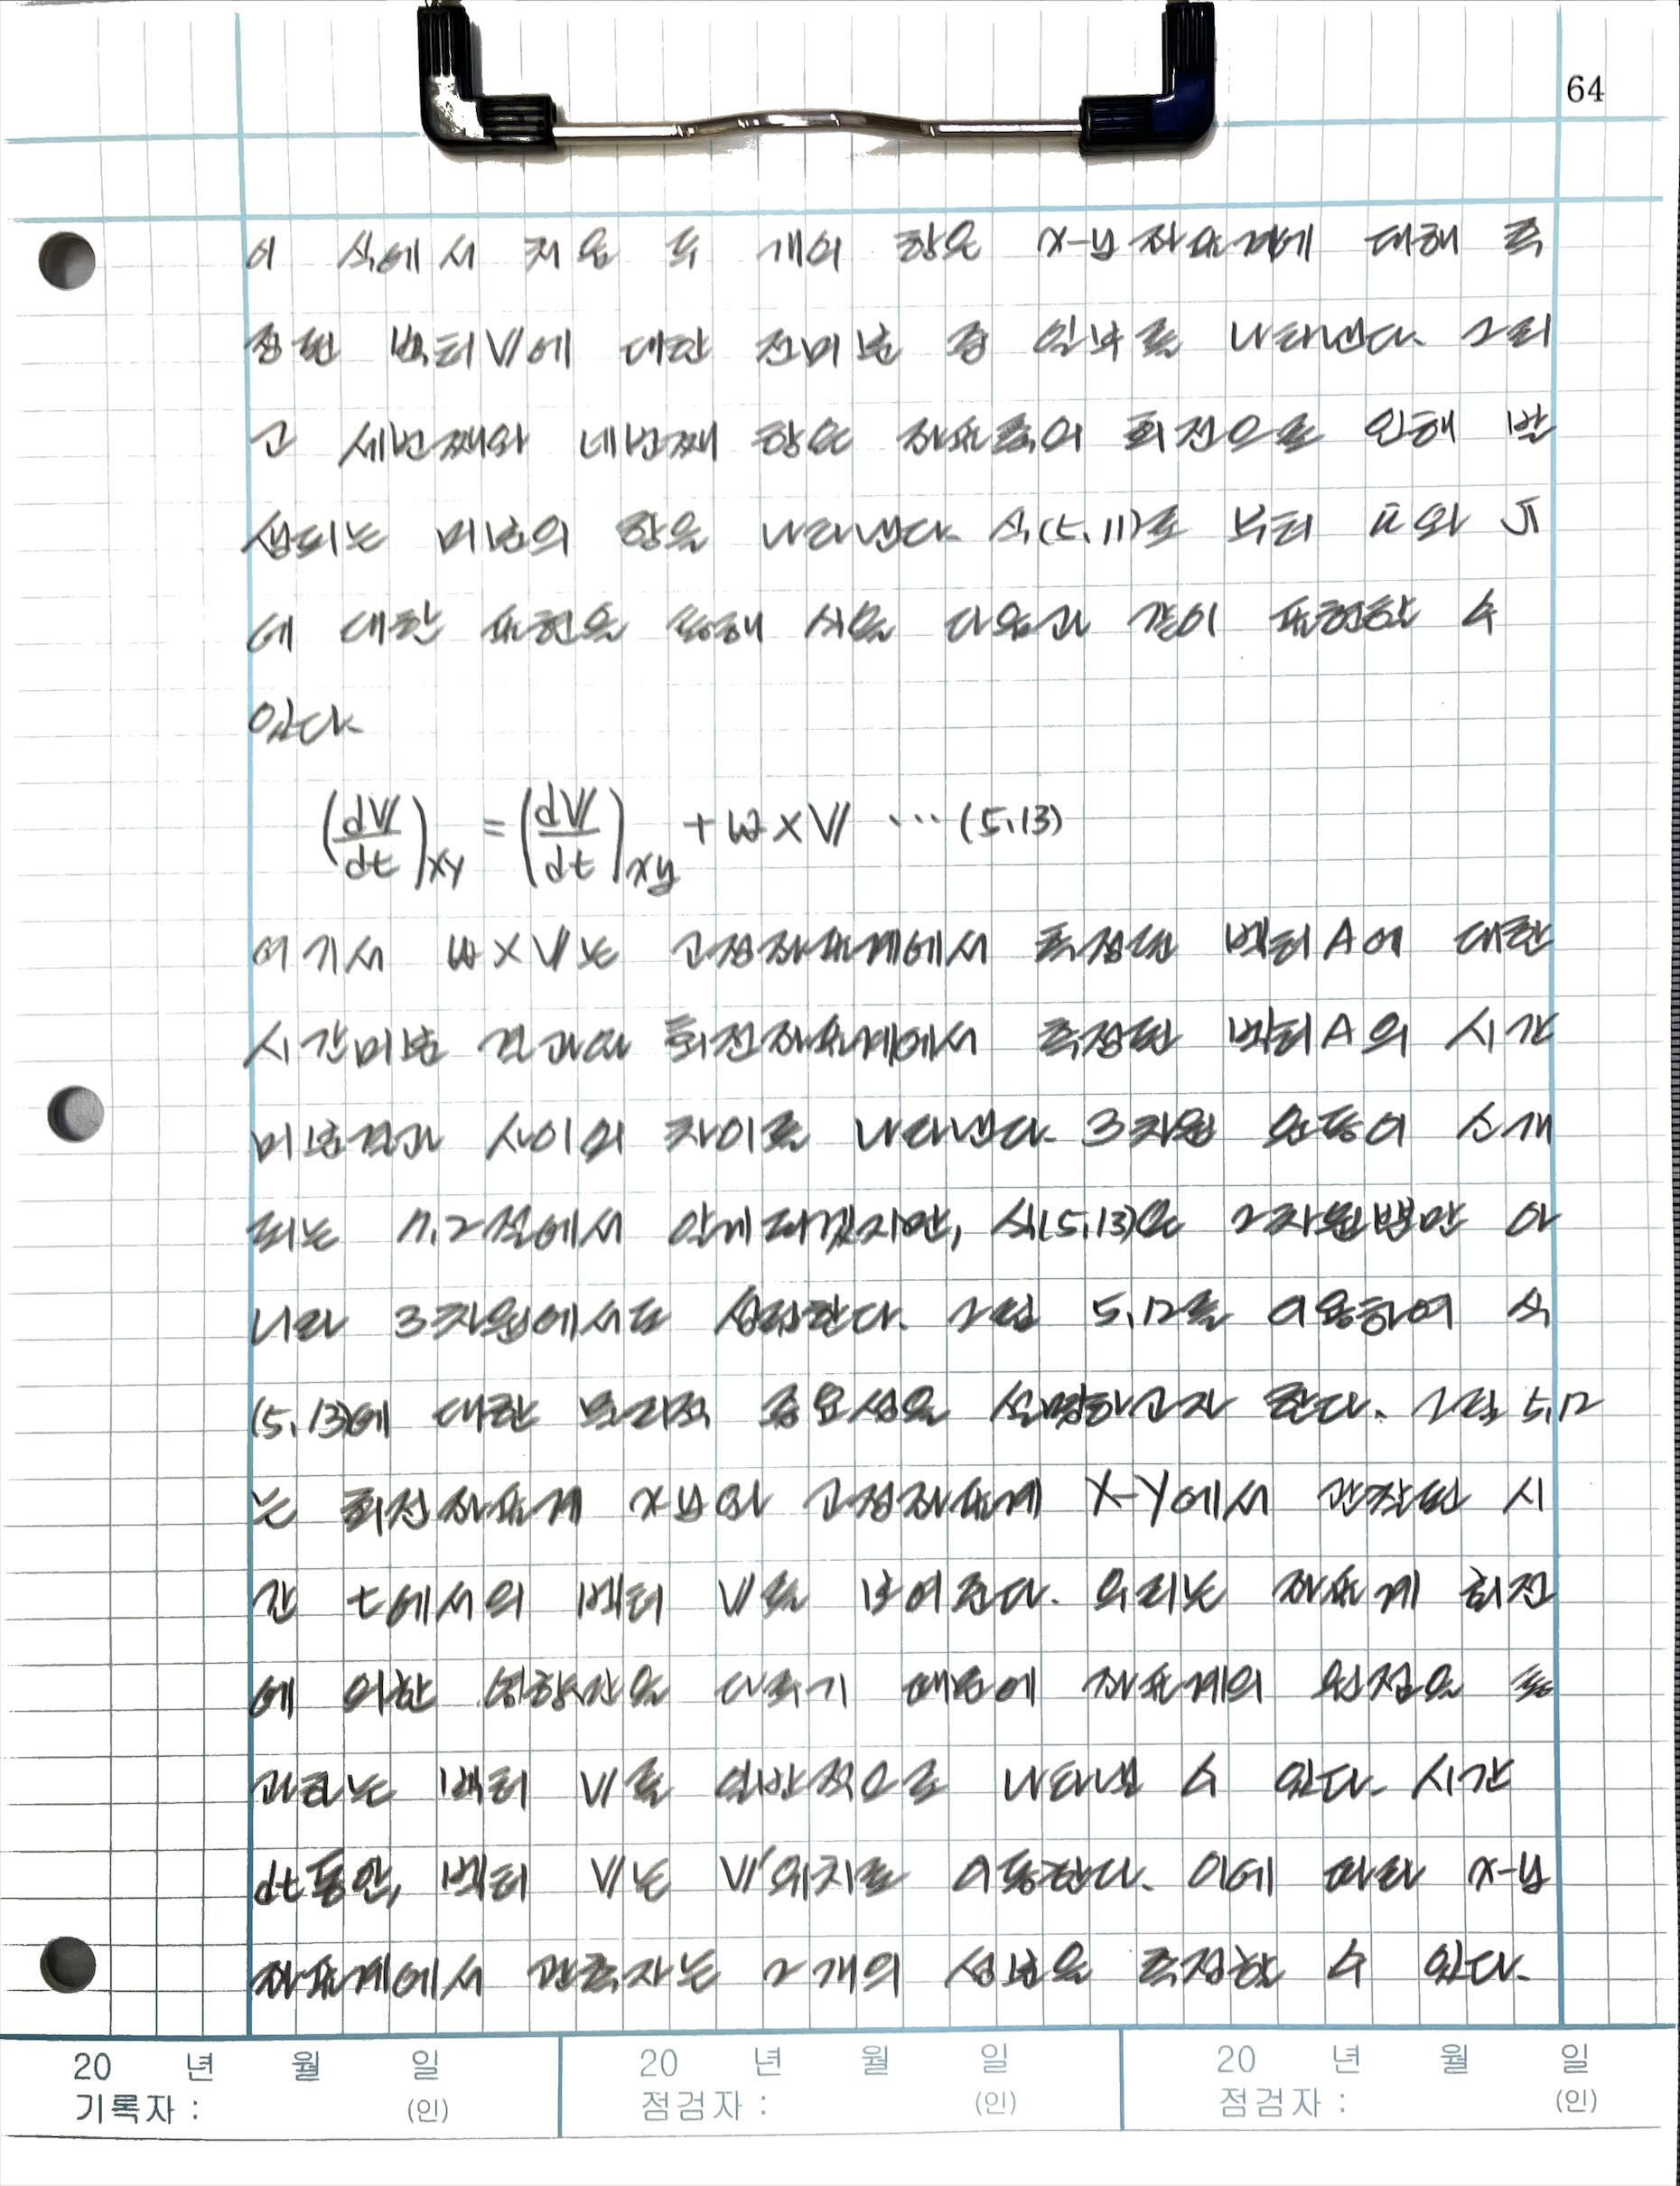 64
이 식에서 처음 두 개의 항은 x-y 좌표계에 대해 측
정한 벡터 V에 대한 전미분 중 일부를 나타낸다. 그리
고 세번째와 네번째 항은 좌표축의 회전으로 인해 발
생되는 미분의 항을 나타낸다. 식(5.11)로 부터 i와 j
에 대한 표현을 통해 식을 다음과 같이 표현할 수
있다.
(dV/dt)XY = (dV/dt)xy + ω×V ⋯ (5.13)
여기서 ω×V는 고정좌표계에서 측정된 벡터 A에 대한
시간미분 결과와 회전좌표계에서 측정된 벡터 A의 시간
미분결과 사이의 차이를 나타낸다. 3차원 운동이 소개
되는 7.2절에서 알게 되겠지만, 식(5.13)은 2차원뿐만 아
니라 3차원에서도 성립한다. 그림 5.12를 이용하여 식
(5.13)에 대한 물리적 중요성을 설명하고자 한다. 그림 5.12
는 회전좌표계 x-y와 고정좌표계 X-Y에서 관찰된 시
간 t에서의 벡터 V를 보여준다. 우리는 좌표계 회전
에 의한 영향만을 다루기 때문에 좌표계의 원점을 통
과하는 벡터 V를 일반적으로 나타낼 수 있다. 시간
dt동안, 벡터 V는 V'위치로 이동한다. 이에 따라 x-y
좌표계에서 관측자는 2개의 성분을 측정할 수 있다.
20 년 월 일 20 년 월 일 20 년 월 일
기록자 : (인) 점검자 : (인) 점검자 : (인)